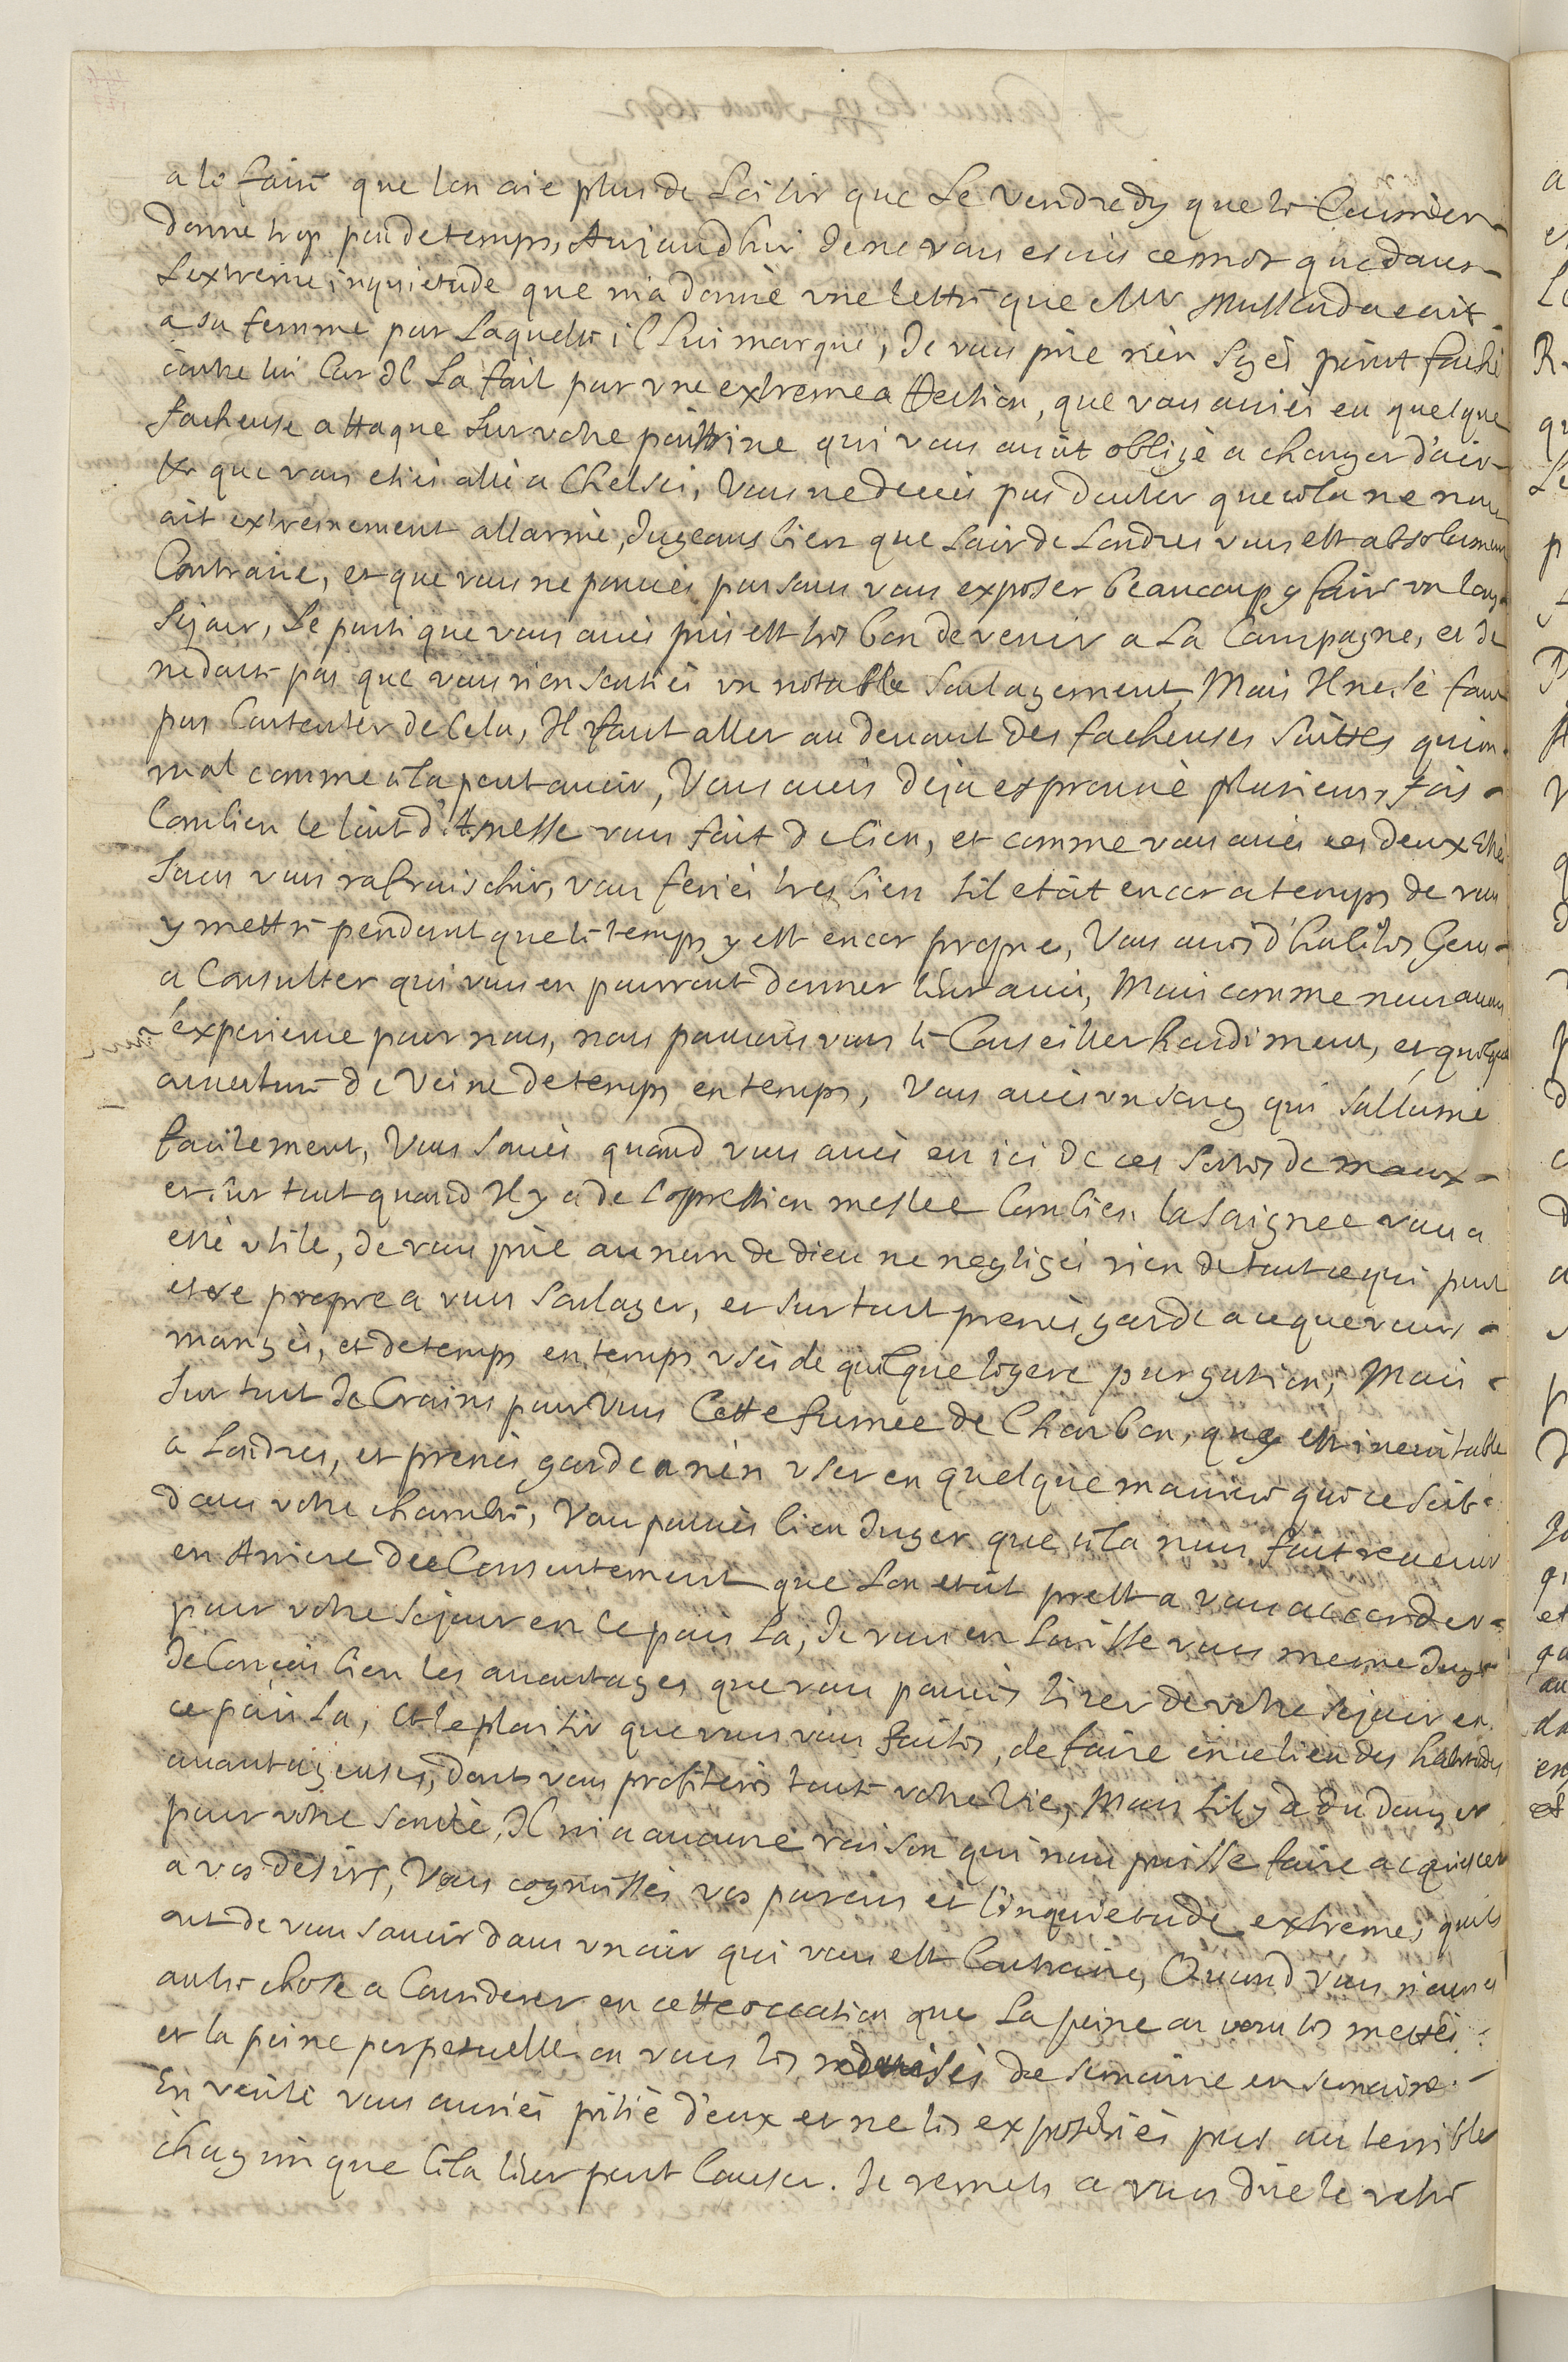 a le faire que lon aie plus de Loisir que Le Vendredy que le Courrier
donne trop peu de temps, Aujourdhui Je ne vous escris ce mot que dans
Lextreme inquietude que m'a donnè une lettre que Mr Mussard a escrit
a sa femme par Laquelle il Lui marque, Je vous prie n'en soyès point fachè
contre lui Car Il La fait par une extreme affection, que vous auiès eu quelque
facheuse attaque sur votre poittrine qui vous auoit obligè a changer d'air
& que vous etiès allè a Chelsei, Vous ne deuès pas douter que cela ne nous
ait extremement allarmè, Jugeans bien que Lair de Londres vous est absolument
Contraire, et que vous ne pouuès pas sans vous exposer beaucoup y faire un long
Sejour, Le parti que vous auès pris est tres bon de venir a La Campagne, et Je
ne doute pas que vous n'en sentiès un notable Soulagement, Mais Il ne se faut
pas Contenter de Cela, Il faut aller au deuant des facheuses Suittes qu'un
mal comme cela peut auoir, Vous auès deja esprouuè plusieurs fois
Combien le lait d'Anesse vous fait de bien, et comme vous auès ces deux Etès
Sans vous rafraischir, vous feriès tres bien s'il etoit encor a temps de vous
y mettre pendant que le temps y est encor propre, Vous auès d'habiles Gens
a Consulter qui vous en pourront donner leur auis, Mais comme nous auons
l'experience pour nous, nous pouuons vous le Conseiller hardiment, et quelque
ouuerture de Veine de temps en temps, Vous auès un sang qui s'allume
facilement, Vous sauès quand vous auès eu ici de ces sortes de maux
et sur tout quand Il y a de Loppression meslee Combien la Saignee vous a
estè utile, Je vous prie au nom de dieu ne negligès rien de tout ce qui peut
etre propre a vous Soulager, et Sur tout prenès garde a ce que vous
mangès, et de temps en temps usès de quelque legere purgation, Mais
Sur tout Je Crains pour Vous Cette fumee de Charbon, qui est ineuitable
a Londres, et prenès garde a n'en user en quelque maniere que ce soit
dans votre chambre, Vous pouuès bien Juger que cela nous fait reuenir
en Arriere de Consentement que Lon etoit prest a vous accorder
pour votre Sejour en Ce pais La, Je vous en Laisse vous meme Juge
Je Conçois bien les auantages que vous pouuès tirer de votre sejour en
ce pais La, et le plaisir que vous vous faites, de faire en ce lieu des habitudes
auantageuses, dont vous profiterès toute votre Vie, Mais S'il y a du danger
pour votre Santè, Il ni a aucune raison qui nous puisse faire acquiescer
a vos desirs, Vous cognoissès vos parens et l'inquietude extreme, quils
ont de vous sauoir dans un air qui vous est Contraire, Quand vous n'auriès
autre chose a Considerer en cette occation que La peine ou vous les mettès
et la peine perpetuelle ou vous les reduisès de semaine en semaine
En verité vous auriès pitiè d'eux et ne les exposeriès pas au terrible
chagrin que Cela leur peut Causer. Je remets a vous dire le reste